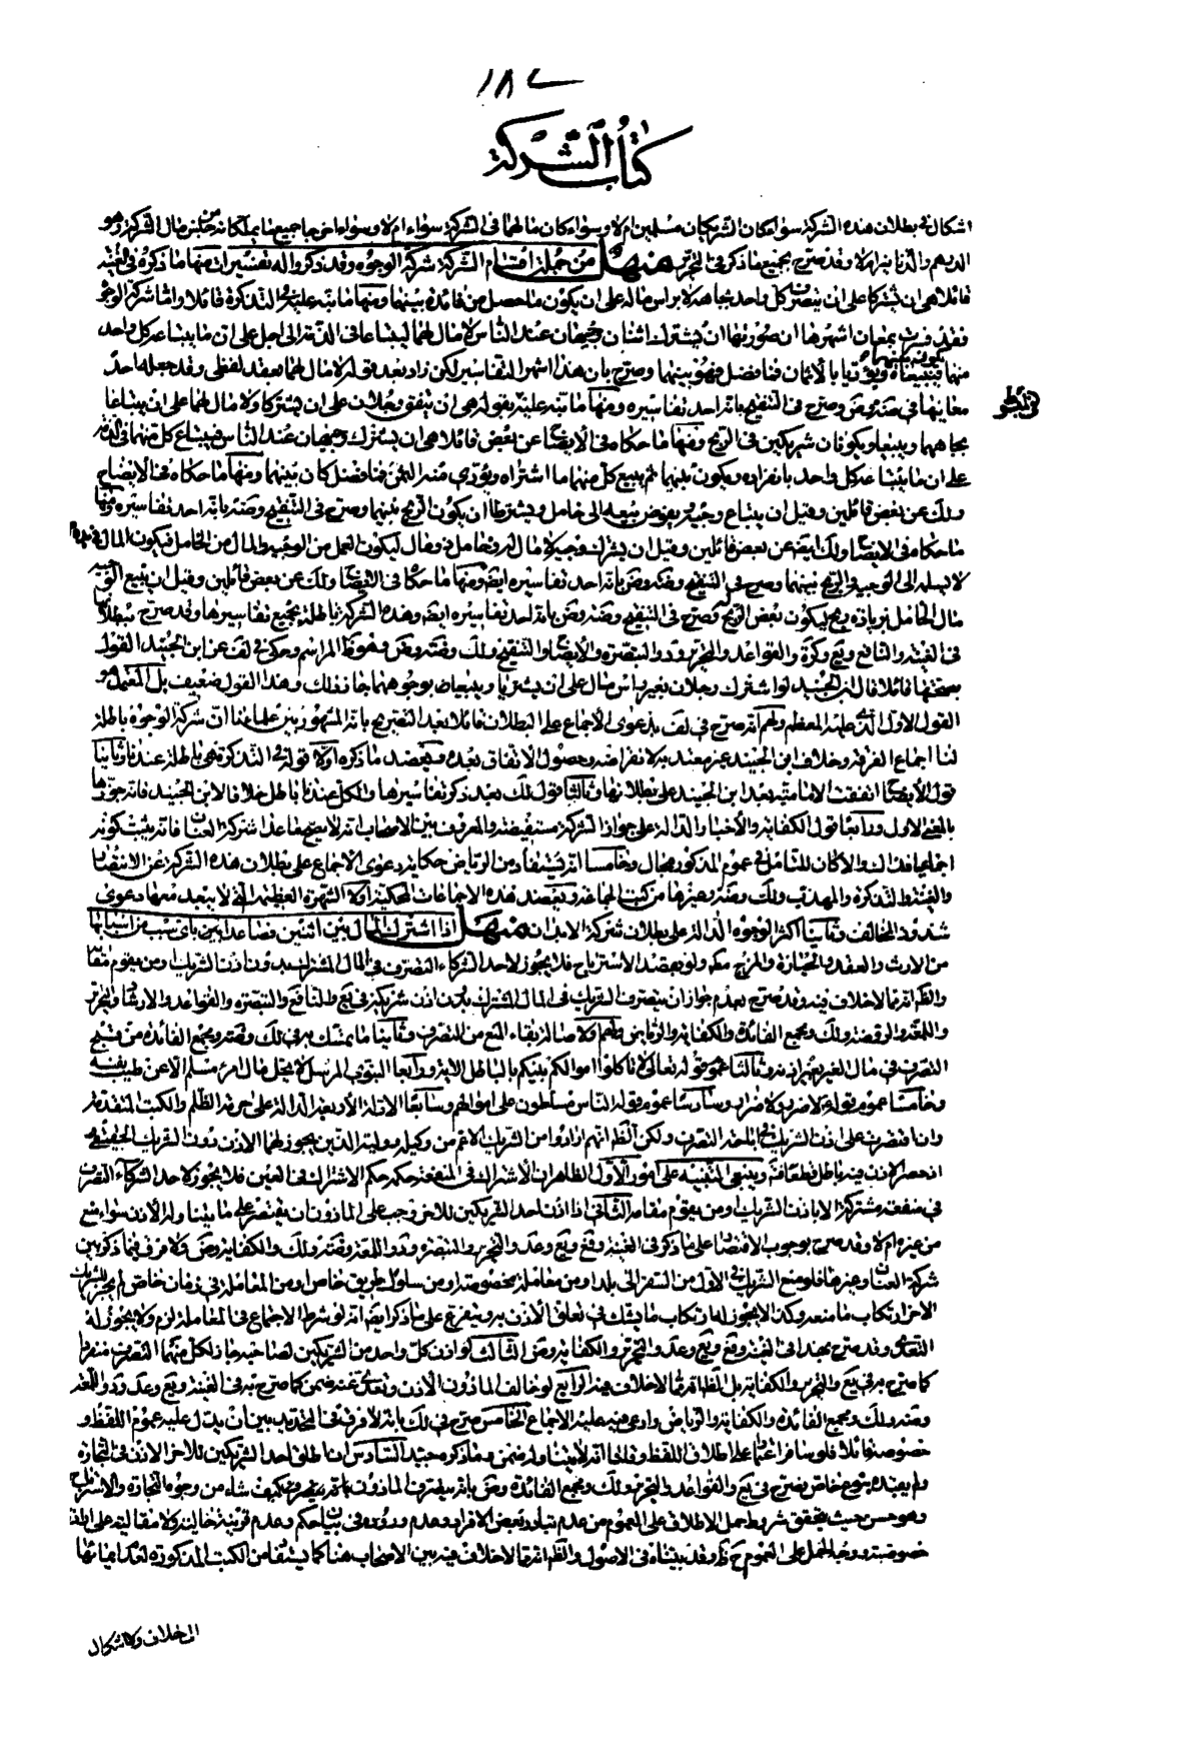 ١٨٧
كتاب الشركة
اشكال في بطلان هذه الشركة سواء كان الشريكان مسلمين ام لا وسواء كان مالهما في الشركة سواء ام لا وسواء اخرجا جميع ما يملكانه من جنس مال الشركة وهو
الدرهم والدنانير ام لا وقد صرح بجميع ما ذكر في التحرير منهل من جملة اقسام الشركة شركة الوجوه وقد ذكروا له تفسيرات منها ما ذكره في الغنية
قائلا هي ان يشتركا على ان يتصرف كل واحد بجاهه لا براس ماله على ان يكون ما حصل من فائدة بينهما ومنها ما نبه عليه في التذكرة قائلا واما شركة الوجوه
فقد فسرت بمعان اشهرها ان صورتها ان يشترك اثنان وجيهان عند الناس لا مال لهما ليبتاعا في الذمة الى اجل على ان ما يبتاعه كل واحد
يكون بينهما
منهما فيبيعاه ويؤديا الاثمان فما فضل فهو بينهما وصرح بان هذا اشهر التفاسير لكن زاد بعد قوله لا مال لهما بعقد لفظي وقد جعله احد
معانيها في ضه وض وصرح في التنقيح بانه احد تفاسيره ومنها ما نبه عليه بقوله هي ان يتفق رجلان على ان يشتركا ولا مال لهما على ان يبتاعا
بجاههما ويبيعا ويكونان شريكين في الربح ومنها ما حكاه في الايضاح عن بعض قائلا هي ان يشترك وجيهان عند الناس فيبتاع كل منهما في الذمة
على ان ما يبتاعه كل واحد بانفراده ويكون بينهما ثم يبيع كل منهما ما اشتراه ويؤدي منه الثمن فما فضل كان بينهما ومنها ما حكاه في الايضاح
ولك عن بعض قائلين وقيل ان يبتاع وجيه ويفوض بيعه الى خامل ويشترطا ان يكون الربح بينهما وصرح في التنقيح وضه بانه احد تفاسيره ومنها
ما حكاه في الايضاح ولك ايضا عن بعض قائلين وقيل ان يشترك وجيه لا مال له وخامل ذو مال ليكون العمل من الوجيه والمال من الخامل فيكون المال في يده
لا يسلمه الى الوجيه والربح بينهما وصرح في التنقيح وضه وض بانه احد تفاسيره ايضا ومنها ما حكاه في الايضاح ولك عن بعض قائلين وقيل ان يبيع الوجيه
مال الخامل بزيادة ربح ليكون بعض الربح له وصرح في التنقيح وضه وض بانه احد تفاسيره ايضا وهذه الشركة باطلة بجميع تفاسيرها وقد صرح ببطلانها
في الغنية والنافع ويع وكرة والقواعد والتحرير ود والتبصرة والايضاح والتنقيح ولك وضه وض وهو ظاهر المراسم وحكي في لف عن ابن الجنيد القول
بصحتها قائلا قال ابن الجنيد لو اشترك رجلان بغير راس مال على ان يشتريا ويبيعا بوجوههما جاز ذلك وهذا القول ضعيف بل المعتمد هو
القول الاول الذي عليه المعظم ولهم انه صرح في لف بدعوى الاجماع على البطلان قائلا بعد التصريح بانه المشهور بين علمائنا ان شركة الوجوه باطلة
لنا اجماع الفرقة وخلاف ابن الجنيد غير معتد به لانقراضه وحصول الاتفاق بعده ويعضد ما ذكره اولا قوله في التذكرة هي باطلة عندنا وثانيا
قول الايضاح اتفقت الامامية بعد ابن الجنيد على بطلانها وثالثا قول لك بعد ذكر تفاسيرها والكل عندنا باطل خلافا لابن الجنيد فانه جوزها
بالمعنى الاول ورابعا قول الكفاية والاخبار الدالة على جواز الشركة مستفيضة والمعروف بين الاصحاب انه لا يصح ما عدا شركة العنان فان ثبت كونه
اجماعيا فذاك والا كان للتامل في عموم المذكور مجال وخامسا انه يستفاد من الرياض حكاية دعوى الاجماع على بطلان هذه الشركة عن الانتصار
والغنية والتذكرة والمهذب ولك وضه وغيرها من كتب الجماعة ويعضد هذه الاجماعات المحكية اولا الشهرة العظيمة التي لا يبعد معها دعوى
شذوذ المخالف وثانيا اكثر الوجوه الدالة على بطلان شركة الابدان منهل اذا اشترك المال بين اثنين فصاعدا باي سبب من اسبابها
من الارث والعقد والحيازة والمزج مكه ولو بقصد الاسترباح فلا يجوز لاحد الشركاء التصرف في المال المشترك بدون اذن الشريك ومن يقوم مقامه
والظاهر انه مما لا خلاف فيه وقد صرح بعدم جواز ان يتصرف الشريك في المال المشترك بدون اذن شريكه في يع والنافع والتبصرة والقواعد والارشاد والتحرير
واللمعة والروضة ولك ومجمع الفائدة والكفاية والرياض ولهم اولا اصالة بقاء المنع من التصرف وثانيا ما تمسك به في لك وضه ومجمع الفائدة من قبح
التصرف في مال الغير بغير اذنه وثالثا عموم قوله تعالى لا تاكلوا اموالكم بينكم بالباطل الاية ورابعا النبوي المرسل لا يحل مال امرء مسلم الا عن طيب نفسه
وخامسا عموم قوله لا ضرر ولا ضرار وسادسا عموم قوله الناس مسلطون على اموالهم وسابعا الادلة الاربعة الدالة على حرمة الظلم والكتب المتقدمة
وان اقتصرت على اذن الشريك في اباحة التصرف ولكن الظاهر انهم ارادوا من الشريك الاعم من وكيله ووليه الذين يجوز لهما الاذن دون الشريك الحقيقي
انحصار الاذن فيه باطل قطعا فتدبر وينبغي التنبيه على امور الاول الظاهر ان الاشتراك في المنفعة حكمه حكم الاشتراك في العين فلا يجوز لاحد الشركاء التصرف
في منفعة مشتركة الا باذن الشريك او من يقوم مقامه الثاني اذا اذن احد الشريكين للاخر وجب على الماذون ان يقتصر على ما يتناوله الاذن سواء منع
من غيره ام لا وقد صرح بوجوب الاقتصار على ما ذكر في الغنية وفع ويع وعد والتحرير والتبصرة ود واللمعة وضه ولك والكفاية وض ولا فرق فيما ذكر بين
شركة العنان وغيرها فلو منع الشريك في الاول من السفر الى بلد او من معاملة مخصوصة او من سلوك طريق خاص او من المعاملة في زمان خاص لم يجز للشريك
الاخر ارتكاب ما منعه وكذا لا يجوز له ارتكاب ما يشك في تعلق الاذن به ويتفرع على ما ذكر ايضا انه لو شرط الاجتماع في المعاملة لزم ولا يجوز له
التعدي وقد صرح بهذا في الغنية وفع ويع وعد والتحرير والكفاية وض الثالث لو اذن كل واحد من الشريكين لصاحبه جاز لكل منهما التصرف منفردا
كما صرح به في يع والتحرير والكفاية بل الظاهر انه مما لا خلاف فيه الرابع لو خالف الماذون الاذن وتعدى عنه ضمن كما صرح به في الغنية ويع وعد ود واللمعة
وضه ولك ومجمع الفائدة والكفاية والرياض وادعى فيه عليه الاجماع الخامس صرح في لك بانه لا فرق في التحديد بين ان يدل عليه عموم اللفظ او
خصوصه قائلا فلو سافر اعتمادا على اطلاق اللفظ وقلنا انه لا يتناوله ضمن وما ذكره جيد السادس اذا اطلق احد الشريكين للاخر الاذن في التجارة
ولم يقيده بنوع خاص فصرح في يع والقواعد والتحرير ولك ومجمع الفائدة وض بانه يتصرف الماذون بما تقتضيه كيف شاء من وجوه التجارة والاسترباح
وهو حسن حيث يتحقق شروط حمل الاطلاق على العموم من عدم تبادر بعض الافراد وعدم وروده في بيان حكم وعدم قرينة حالية ولا مقالية على ارادة
خصوصية ووجه الحمل على العموم ح ظاهر وقد بيناه في الاصول والظاهر انه مما لا خلاف فيه بين الاصحاب هنا كما يستفاد من الكتب المذكورة لعد ايمائها
الى خلاف ولا اشكال